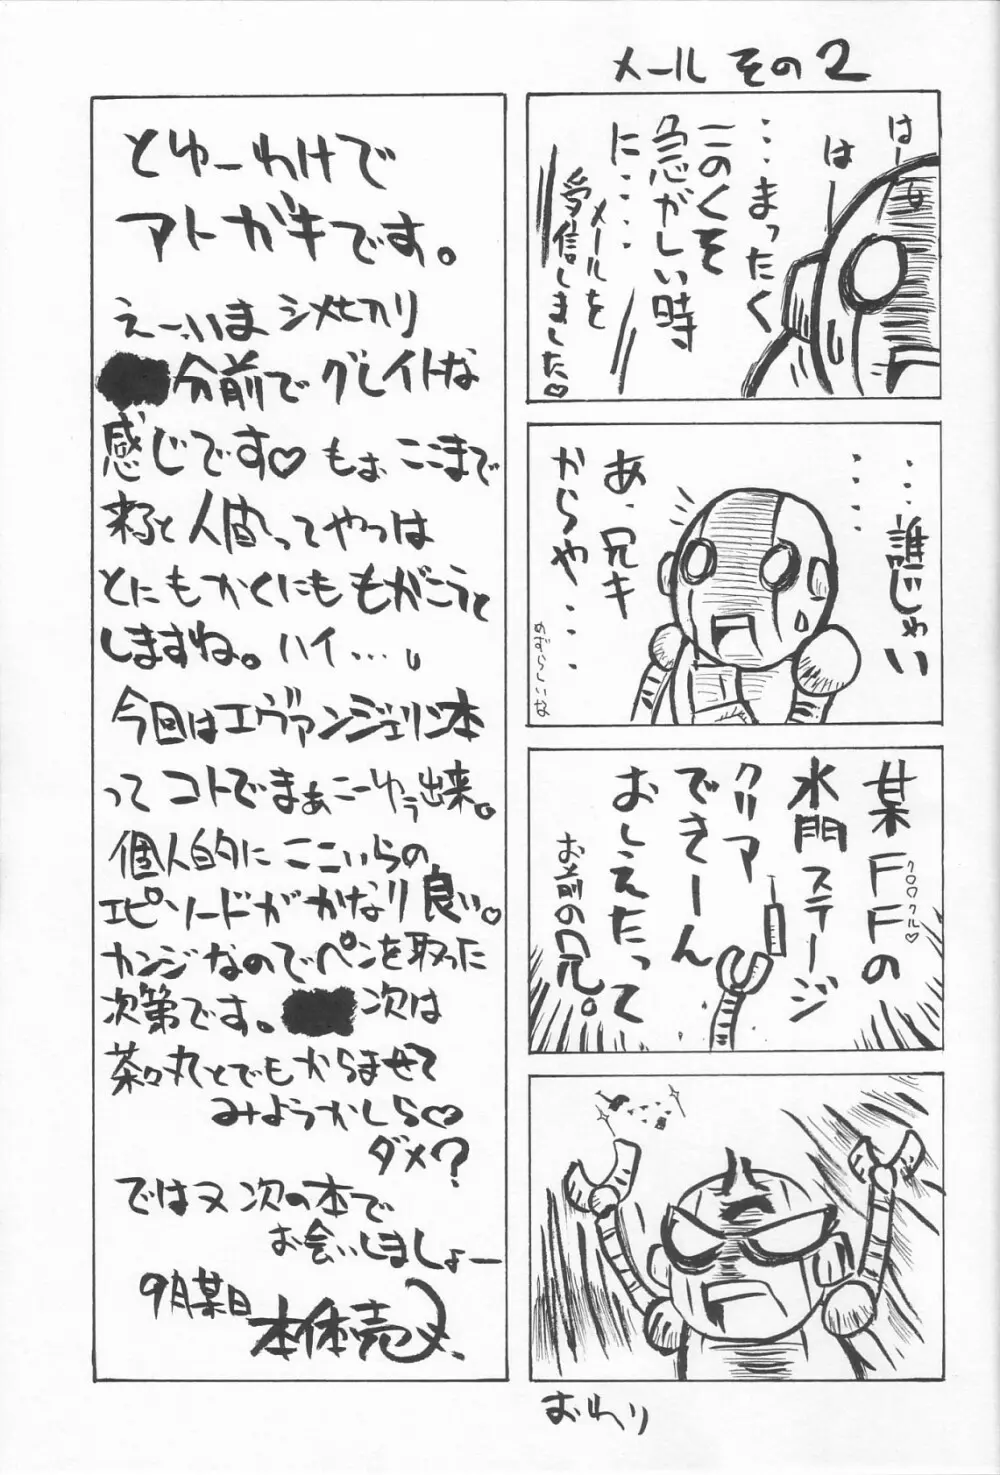 メール その2
はーっ
はー
・・・まったく
このくそ
急がしい時
に・・・・
メールを
受信しました♡
・・・・・・・
誰じゃい
あ、兄キ
からや・・・
めずらしいな
某FFの
ク○○クル♡
水門ステージ
クリア
できーん
おしえたって
お前の兄。
おわり
とゆーわけで
アトガキです。
えーいま シメセカリ
分前で グレイトな
感じです♡ もぉ ここまで
来ると 人間ってやつは
とにもかくにも もがこうと
しますね。ハイ…。
今回はエヴァンジェリン本
って コトで まぁこーゆう出来。
個人的に ここいらの
エピソードが かなり 良い。
カンジなので ペンを取った
次第です。 次は
茶々丸とでもからませて
みようかしら♡
ダメ?
ではヌ 次の本で
お会いしましょー
9月某日
本体売